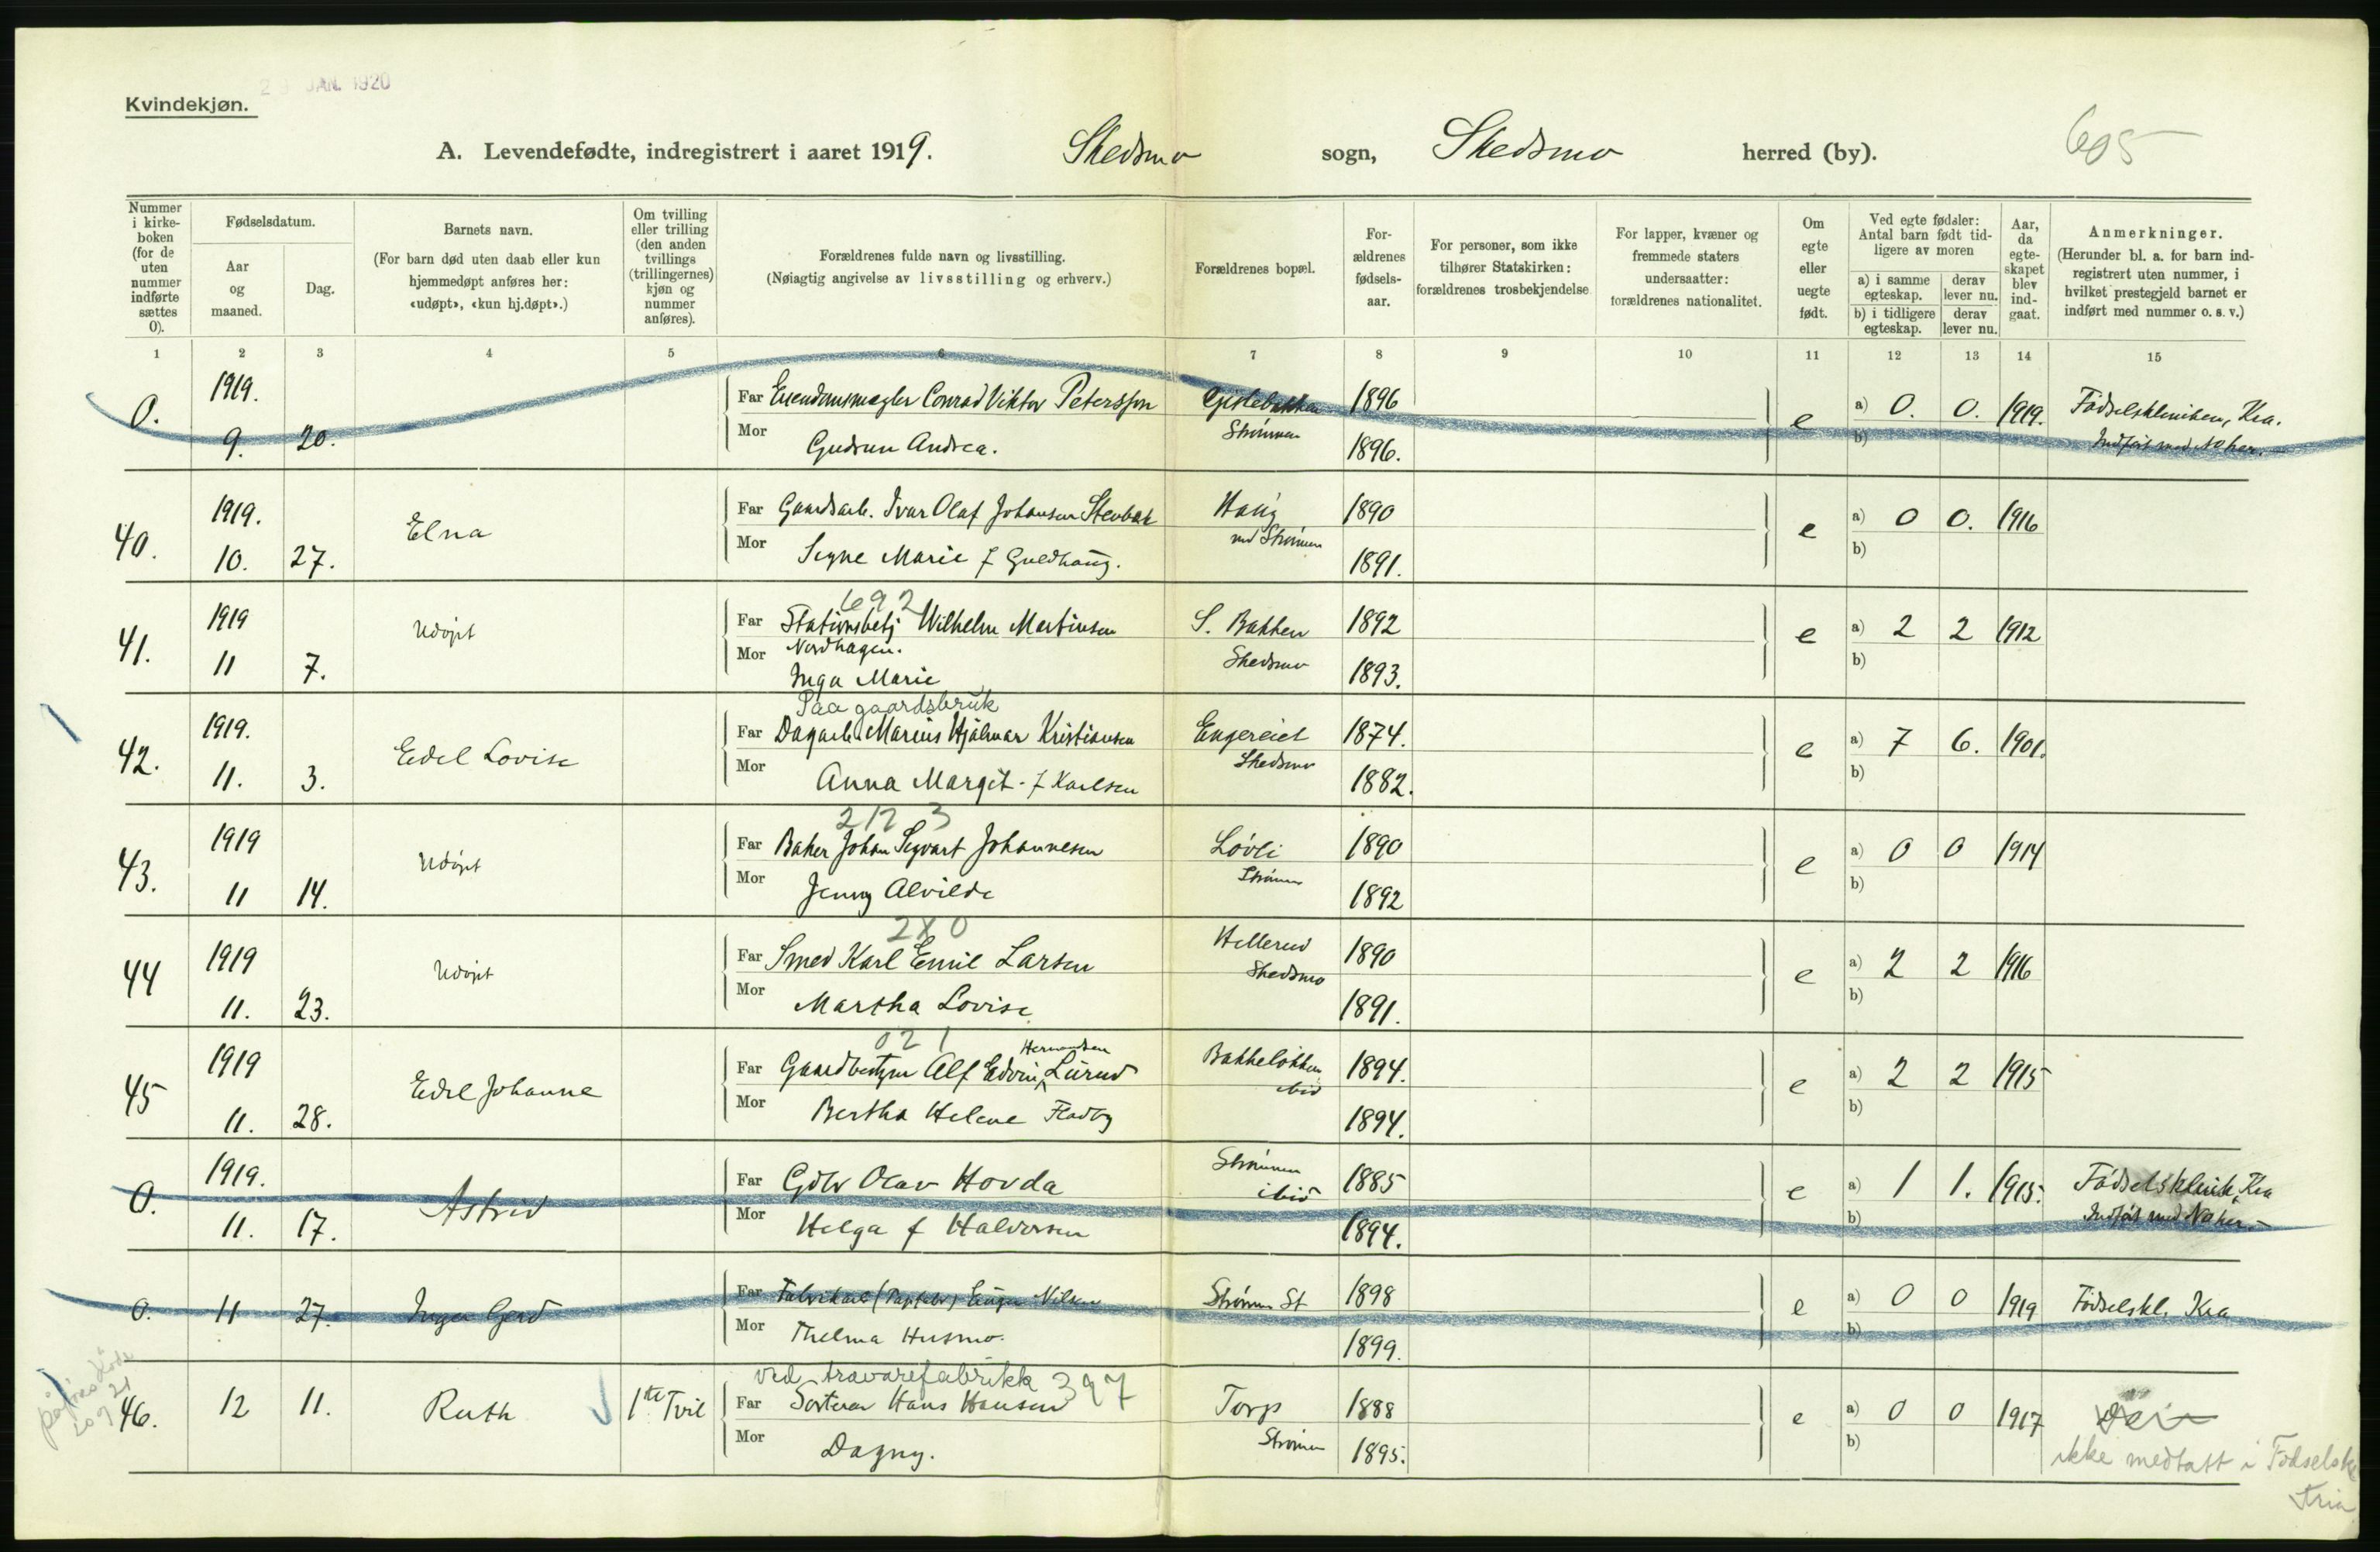 JAN. 1920
Kvindekjøn.
A. Levendefødte, indregistrert i aaret 1919. Skedsmo sogn, Skedsmo herred (by). 605
Nummer i kirkeboken (for de uten nummer indførte sættes 0).
Fødselsdatum.
Aar og maaned.
Dag.
Barnets navn.
(For barn død uten daab eller kun hjemmedøpt anføres her: «udøpt», «kun hj.døpt».)
Om tvilling eller trilling (den anden tvillings (trillingernes) kjøn og nummer anføres).
Forældrenes fulde navn og livsstilling.
(Nøiagtig angivelse av livsstilling og erhverv.)
Forældrenes bopæl.
Forældrenes fødselsaar.
For personer, som ikke tilhører Statskirken: forældrenes trosbekjendelse
For lapper, kvæner og fremmede staters undersaatter: forældrenes nationalitet.
Om egte eller uegte født.
Ved egte fødsler: Antal barn født tidligere av moren
a) i samme egteskap. derav lever nu.
b) i tidligere egteskap. derav lever nu.
Aar, da egteskapet blev indgaat.
Anmerkninger.
(Herunder bl. a. for barn indregistrert uten nummer, i hvilket prestegjeld barnet er indført med nummer o. s. v.)
1 2 3 4 5 6 7 8 9 10 11 12 13 14 15
0. 1919. Far Eiendomsmægler Conrad Viktor Petersson 1896 e a) 0. 0. 1919. Fødselskliniken, Kra.
9. 20. Mor Gudrun Andrea. Strømmen 1896. b) Indført med No her.
40. 1919. Elna Far Gaardsarb. Ivar Olaf Johansen Stenbak Haug 1890 e a) 0 0. 1916
10. 27. Mor Signe Marie f Guldhaug. ved Strømmen 1891. b)
692
41. 1919 Udøpt Far Stationsbetj Wilhelm Martinsen S. Bakken 1892 e a) 2 2 1912
11 7. Mor Nordhagen. Skedsmo 1893. b)
Inga Marie
Paa gaardsbruk
42. 1919. Edel Lovise Far Dagarb. Marius Hjalmar Kristiansen Engereiet 1874. e a) 7 6. 1901.
11. 3. Mor Anna Margit - f Karlsen Skedsmo 1882. b)
212 3
43. 1919 Udøpt Far Baker Johan Sigvart Johannesen Løvli 1890 e a) 0 0 1914
11 14. Mor Jenny Alvilde Strømmen 1892 b)
280
44 1919 Udøpt Far Smed Karl Emil Larsen Hellerud 1890 e a) 2 2 1916
11. 23. Mor Martha Lovise Skedsmo 1891. b)
021 Hermansen
45 1919 Edel Johanne Far Gaardbestyrer Alf Edvin Lurud Bakkeløkken 1894. e a) 2 2 1915
11. 28. Mor Bertha Helene Fladby ibid 1894. b)
0. 1919. Astrid Far Gdbr Olav Hovda Strømmen 1885 e a) 1 1. 1915. Fødselsklinik, Kra
11. 17. Mor Helga f Halvorsen ibid 1894. b) Indført med No her.
0. 11 27. Inger Gerd Far Fabrikarb (Papfabr) Nilsen Strømmen St 1898 e a) 0 0 1919 Fødselskl. Kra
Mor Thelma Husmo. 1899. b)
ved trævarefabrikk 397
46. 12 11. Ruth 1ste Tvil Far Sorterer Hans Hansen Torp 1888 e a) 0 0 1917
Mor Dagny. Strømmen 1895. b) ikke medtatt i Fødselsk
Kria